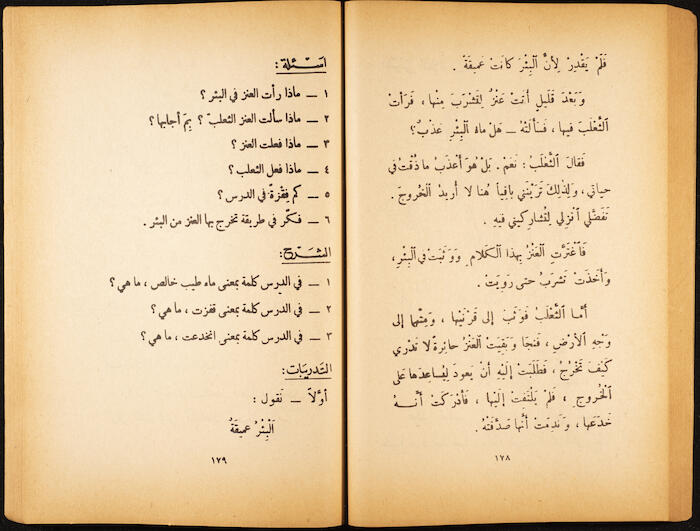 فَلَمْ يَقْدِرْ لِأَنَّ البِئْرَ كانَتْ عَميقَةً .
وَبَعْدَ قَليلٍ أتَتْ عَنْزٌ لِتَشْرَبَ مِنْها ، فَرَأتْ
الثَّعْلَبَ فيها ، فَسَألَتْهُ ــ هَلْ ماءُ البِئْرِ عَذْبٌ؟
فَقالَ الثَّعْلَبُ : نَعَمْ . بَلْ هُوَ أعْذَبُ ما ذُقْتُ في
حياتي ، وَلِذٰلِكَ تَرَيْنَني باقِياً هُنا لا أُريدُ الخُروجَ .
تَفَضَّلي انْزِلي لِتُشارِكيني فيهِ .
فَاغْتَرَّتِ العَنْزُ بِهذا الكَلامِ وَوَثَبَتْ في البِئْرِ ،
وَأخَذَتْ تَشْرَبُ حتى رَوِيَتْ .
أمّا الثَّعْلَبُ فَوَثَبَ إلى قَرْنَيْها ، وَمِنْها إلى
وَجْهِ الأرْضِ ، فَنَجا وَبَقِيَتْ العَنْزُ حائِرَةً لا تَدْري
كَيْفَ تَخْرُجُ ، فَطَلَبَتْ إلَيْهِ أنْ يَعودَ لِيُساعِدَها عَلى
الخُروجِ ، فَلَمْ يَلْتَفِتْ إلَيْها ، فَأدْرَكَتْ أنَّهُ
خَدَعَها ، وَنَدِمَتْ أنَّها صَدَّقَتْهُ .
١٧٨
اسئلة :
١ ــ ماذا رأت العنز في البئر ؟
٢ ــ ماذا سألت العنز الثعلبَ ؟ بِمَ أجابها ؟
٣ ــ ماذا فعلت العنز ؟
٤ ــ ماذا فعل الثعلب ؟
٥ ــ كم فِقْرَةً في الدرس ؟
٦ ــ فكّر في طريقة تخرج بها العنز من البئر .
الشرح :
١ ــ في الدرس كلمة بمعنى ماء طيب خالص ، ما هي ؟
٢ ــ في الدرس كلمة بمعنى قفزت ، ما هي ؟
٣ ــ في الدرس كلمة بمعنى انخدعت ، ما هي ؟
التدريبات :
أوّلاً ــ نَقول :
البِئْرُ عميقَةٌ
١٧٩